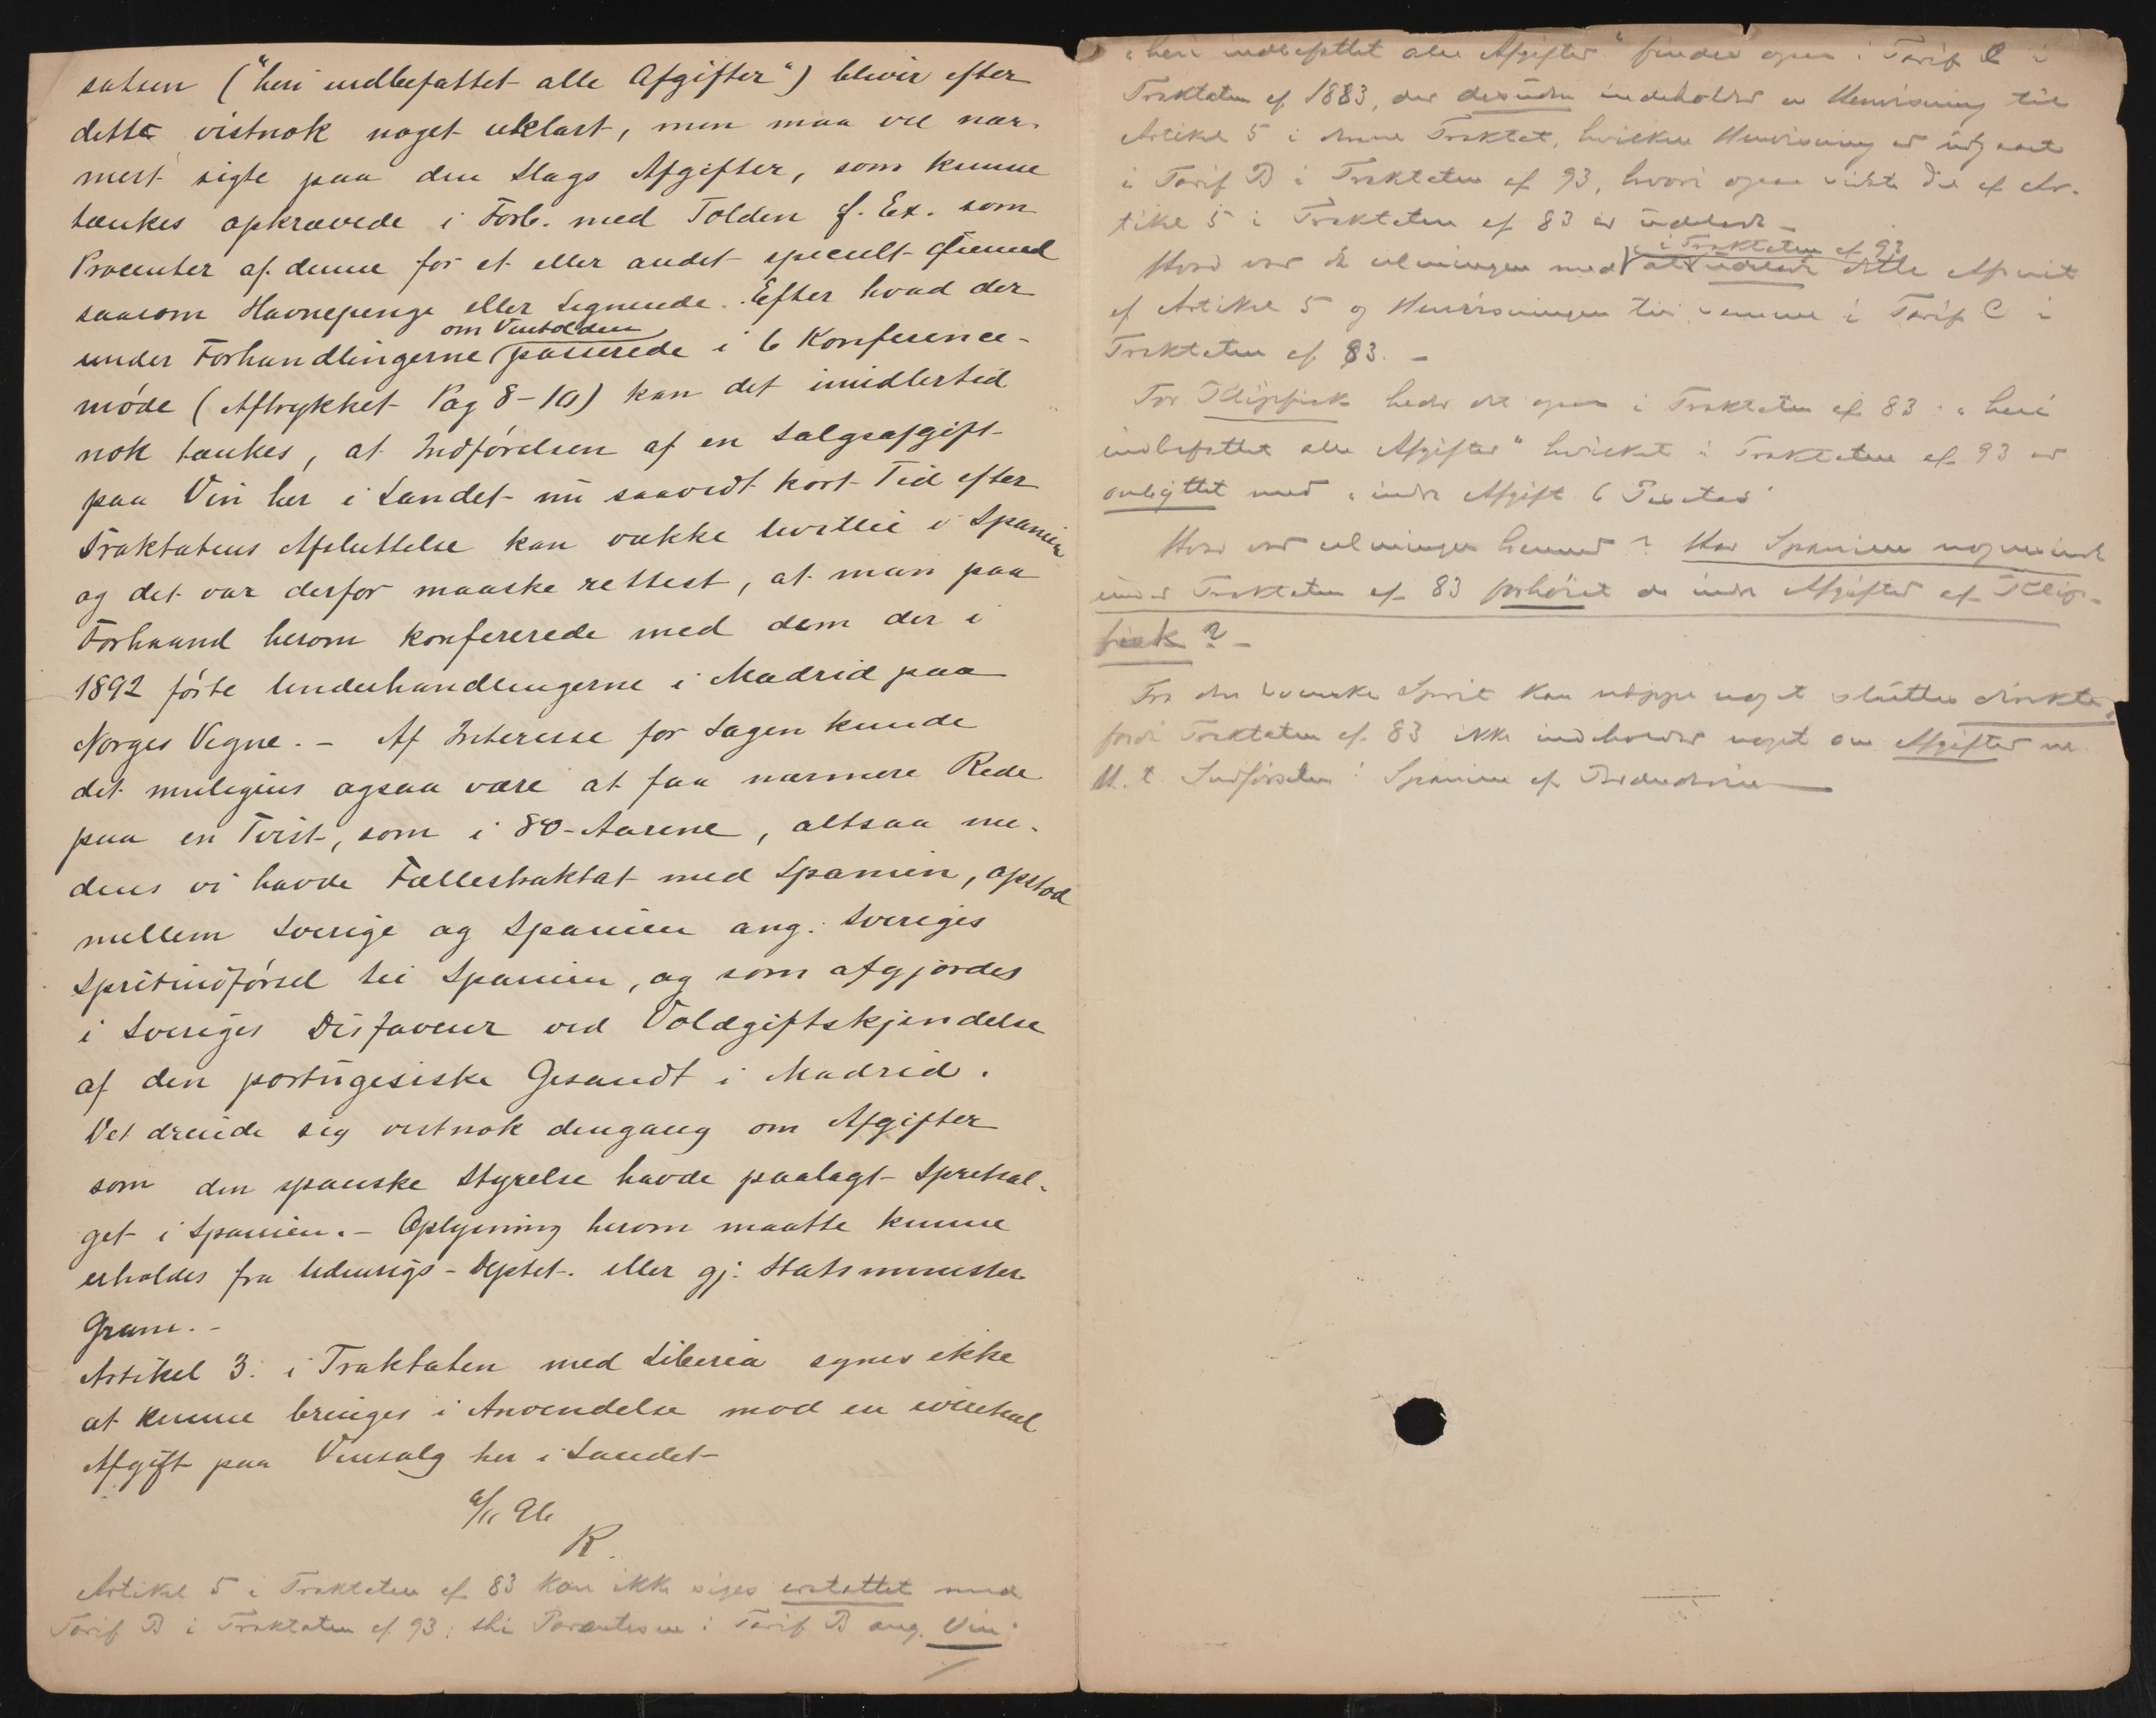 satsen ("heri indbefattet alle Afgifter") bliver efter
dette vistnok noget uklart, men maa vel nær-
mest sigte paa den Slags Afgifter, som kunne
tænkes opkrævede i Forb. med Tolden f. Ex. som
Procenter af denne for et eller andet specielt Øiemed
saasom Havnepenge eller Lignende. Efter hvad der
om Vintolden
under Forhandlingerne passerede i 6 Konference-
möde (Aftrykket Pag 8-10) kan det imidlertid
nok tænkes, at Indförelsen af en Salgsafgift
paa Vin her i Landet nu saavidt kort Tid efter
Traktatens Afsluttelse kan vække Uvillie i Spanien
og det var derfor maaske rettest, at man paa
Forhaand herom konfererede med dem der i
1892 förte Underhandlingerne i Madrid paa
Norges Vegne. - Af Interesse for Sagen kunde
det muligens ogsaa være at faa nærmere Rede
paa en Tvist, som i 80-Aarene, altsaa me-
dens vi havde Fællestraktat med Spanien, opstod
mellem Sverige og Spanien ang. Sveriges
Spritindförsel til Spanien, og som afgjordes
i Sveriges Disfaveur ved Voldgiftskjendelse
af den portugisiske Gesandt i Madrid.
Det dreiede sig vistnok dengang om Afgifter
som den spanske Styrelse havde paalagt Spritsal-
get i Spanien. - Oplysning herom maatte kunne
erholdes fra Udenrigs-Deptet. eller gj. Statsminister
Gram. -
Artikel 3. i Traktaten med Liberia synes ikke
at kunne bringes i Anvendelse mod en eventuel
Afgift paa Vinsalg her i Landet
6/11 96
R.
Artikel 5 i Traktaten af 83 kan ikke siges erstattet med
Tarif B i Traktaten af 93; thi Parantesen i Tarif B ang. Vin:
"heri indbefattet alle Afgifter" findes ogsaa i Tarif C i
Traktaten af 1883, der desuden indeholder en Henvisning til
Artikel 5 i denne Traktat, hvilken Henvisning er udgaaet
i Tarif B i Traktaten af 93, hvori ogsaa sidste Del af Ar-
tikel 5 i Traktaten af 83 er udeladt -
i Traktaten af 93
Hvad var da meningen med at udelade dette Afsnit
af Artikel 5 og Henvisningen til samme i Tarif C i
Traktaten af 83. -
For Klipfisk heder det ogsaa i Traktaten af 83: "heri
indbefattet alle Afgifter" hvilket i Traktaten af 93 er
ombyttet med "indre Afgift 6 Pesetas"
Hvad var meningen hermed? Har Spanien
under Traktaten af 83 forhöiet de indre Afgifter af Klip-
fisk? -
Fra den svenske Sprit kan neppe noget sluttes direkte,
fordi Traktaten af 83 ikke indeholder noget om Afgifter m.
H. t. Indförselen i Spanien af Brændevin